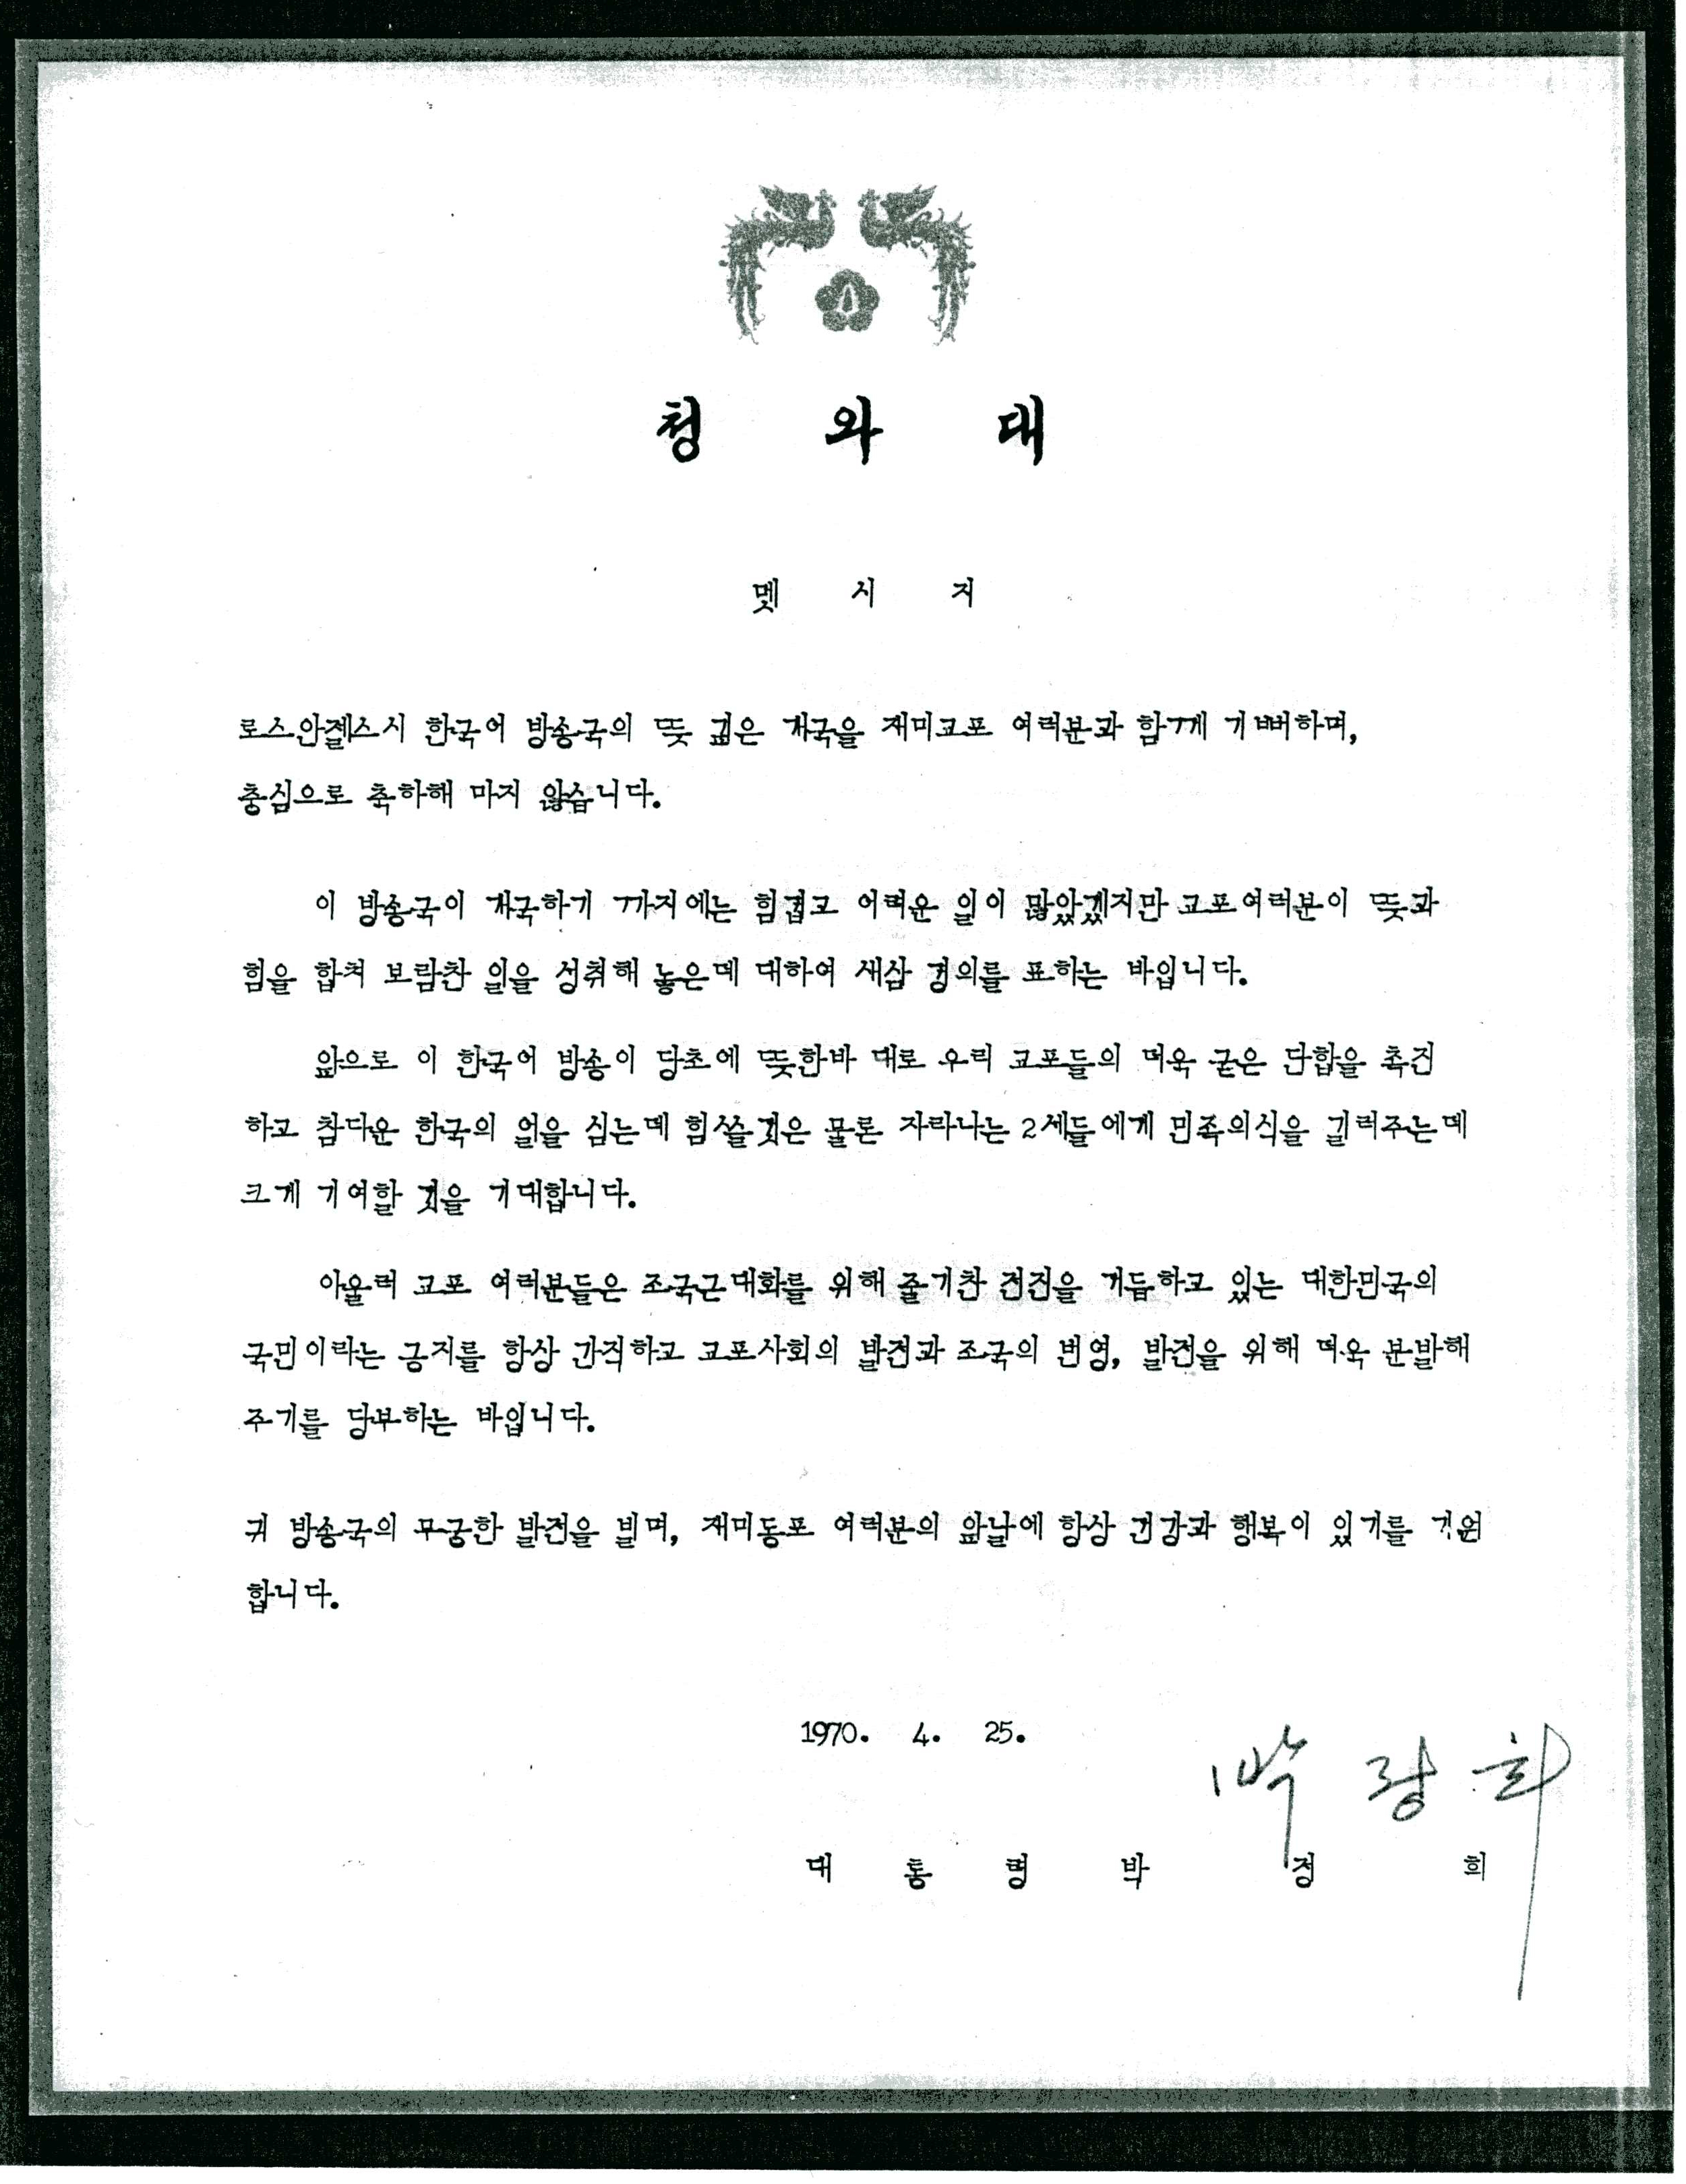 청 와 대
멧 시 지
로스안젤스시 한국어 방송국의 뜻 깊은 개국을 재미교포 여러분과 함께 기뻐하며,
충심으로 축하해 마지 않습니다.
이 방송국이 개국하기 까지에는 힘겹고 어려운 일이 많았겠지만 교포여러분이 뜻과
힘을 합쳐 보람찬 일을 성취해 놓은데 대하여 새삼 경의를 표하는 바입니다.
앞으로 이 한국어 방송이 당초에 뜻한바 대로 우리 교포들의 더욱 굳은 단합을 촉진
하고 참다운 한국의 얼을 심는데 힘쓸것은 물론 자라나는 2세들에게 민족의식을 길러주는데
크게 기여할 것을 기대합니다.
아울러 교포 여러분들은 조국근대화를 위해 줄기찬 전진을 거듭하고 있는 대한민국의
국민이라는 긍지를 항상 간직하고 교포사회의 발전과 조국의 번영, 발전을 위해 더욱 분발해
주기를 당부하는 바입니다.
귀 방송국의 무궁한 발전을 빌며, 재미동포 여러분의 앞날에 항상 건강과 행복이 있기를 기원
합니다.
1970. 4. 25.
박정희
대 통 령 박 정 희